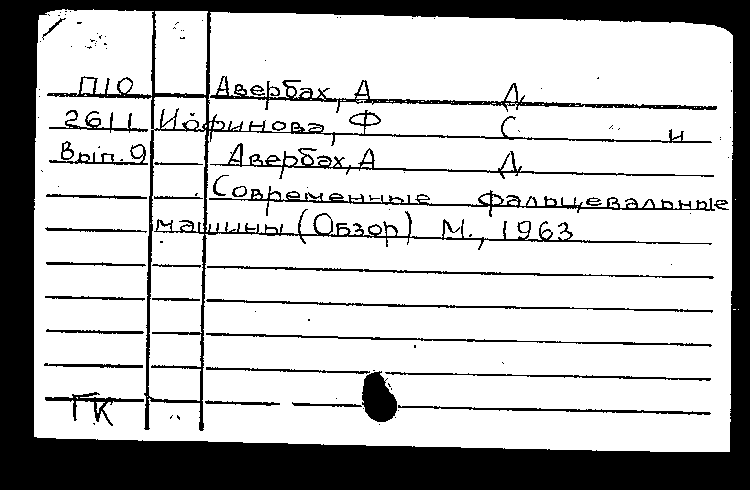 П10 Авербах, А Д
2611 Иофинова, Ф С и
Вып. 9 Авербах, А Д
Современные фальцевальные
машины (Обзор) М., 1963
ГК